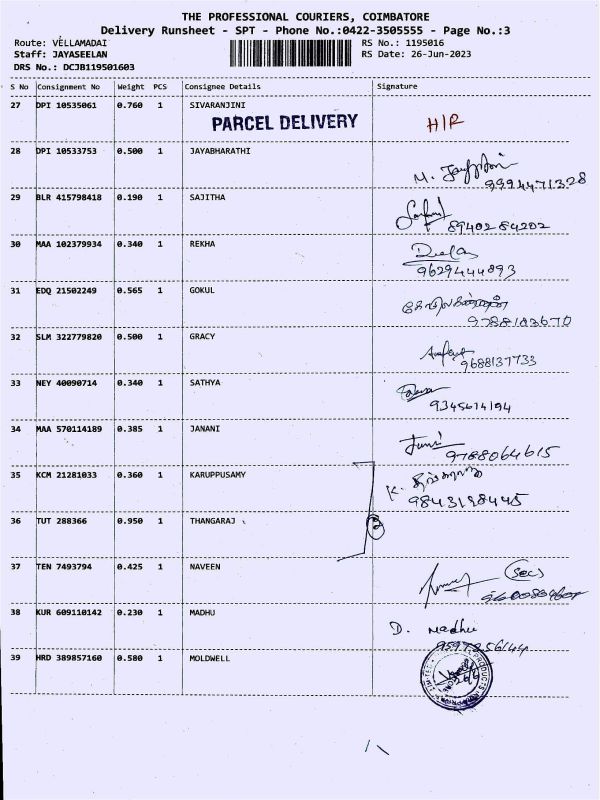 THE PROFESSIONAL COURIERS, COIMBATORE
Delivery Runsheet - SPT - Phone No.:0422-3505555 - Page No.:3
Route: VELLAMADAI RS No.: 1195016
Staff: JAYASEELAN RS Date: 26-Jun-2023
DRS No.: DCJB119501603
S No Consignment No Weight PCS Consignee Details Signature
27 DPI 10535061 0.760 1 SIVARANJINI
PARCEL DELIVERY H/R
28 DPI 10533753 0.500 1 JAYABHARATHI
M.
9994471328
29 BLR 415798418 0.190 1 SAJITHA
8940284202
30 MAA 102379934 0.340 1 REKHA
9629444893
31 EDQ 21502249 0.565 1 GOKUL
9788183670
32 SLM 322779820 0.500 1 GRACY
9688137733
33 NEY 40090714 0.340 1 SATHYA
9345614194
34 MAA 570114189 0.385 1 JANANI
9788064615
35 KCM 21281033 0.360 1 KARUPPUSAMY K.
9843198445
36 TUT 288366 0.950 1 THANGARAJ
37 TEN 7493794 0.425 1 NAVEEN (Sec)
38 KUR 609110142 0.230 1 MADHU D. Madhu
39 HRD 389857160 0.580 1 MOLDWELL